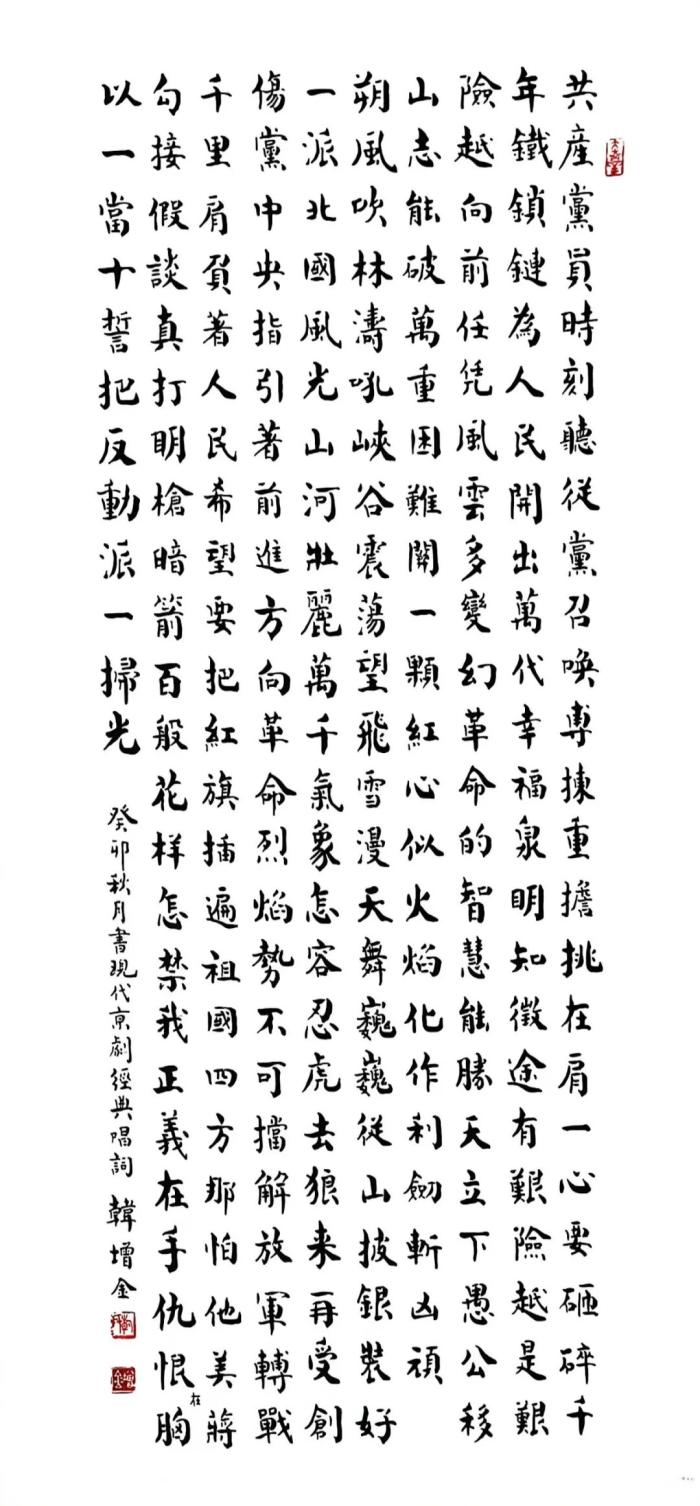 共産黨員時刻聽從黨召喚專揀重擔挑在肩一心要砸碎千
年鐵鎖鏈為人民開出萬代幸福泉明知徵途有艱險越是艱
險越向前任凭風雲多變幻革命的智慧能勝天立下愚公移
山志能破萬重困難關一顆紅心似火焰化作利劍斬凶頑
朔風吹林濤吼峽谷震蕩望飛雪漫天舞巍巍從山披銀裝好
一派北國風光山河壯麗萬千氣象怎容忍虎去狼来再受創
傷黨中央指引著前進方向革命烈焰勢不可擋解放軍轉戰
千里肩負著人民希望要把紅旗插遍祖國四方那怕他美蔣
勾接假談真打明槍暗箭百般花样怎禁我正義在手仇恨在胸
以一當十誓把反動派一掃光
癸卯秋月書現代京劇經典唱詞 韓增金